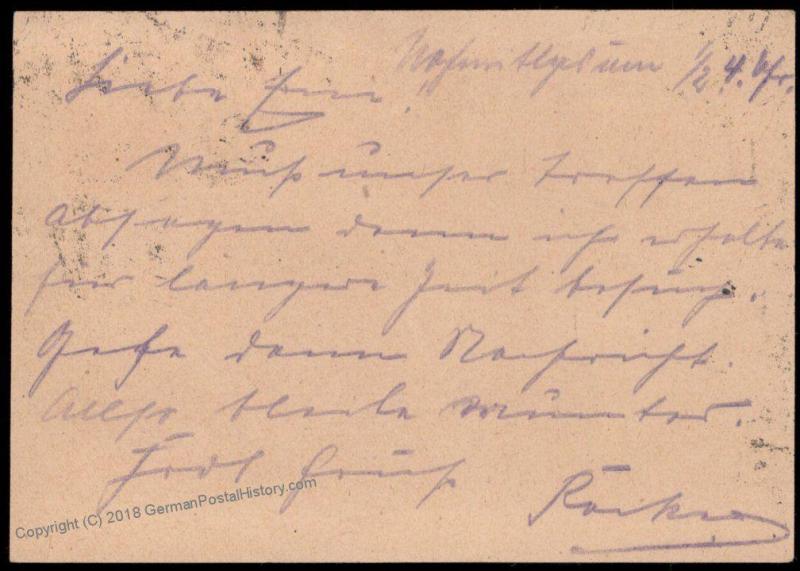 ½ 4. Uhr.
Liebe
Muß unser treffen
absagen denn ich erhalte
für längere Zeit besuch.
Gebe dann Nachricht.
Also bleibe munter.
Frdl Gruß
Copyright (C) 2018 GermanPostalHistory.com